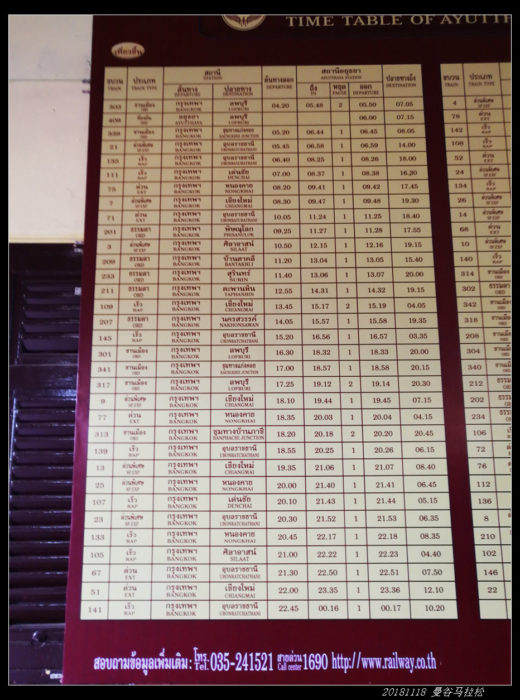 TIME TABLE OF AYUTTH
เที่ยวขึ้น
ขบวน ประเภท สถานี ต้นทางออก สถานีอยุธยา ปลายทางถึง ขบวน ประเภท
TRAIN TRAIN TYPE STATION DEPARTURE AYUTTHAYA STATION DESTINATION TRAIN
ต้นทาง ปลายทาง ถึง หยุด ออก
DEPARTURE DESTINATION IN PAUSE DEPARTURE
303 ชานเมือง กรุงเทพฯ ลพบุรี 04.20 05.48 2 05.50 07.05 4
ORD BANGKOK LOPBURI
อยุธยา ลพบุรี 06.00 07.15 78
AYUTTHAYA LOPBURI
339 ชานเมือง กรุงเทพฯ ชุมทางแก่งคอย 05.20 06.44 1 06.45 08.05 142
ORD BANGKOK KAENGKHOI JUNCTION
21 ด่วนพิเศษ กรุงเทพฯ อุบลราชธานี 05.45 06.58 1 06.59 14.00 108
SP.EXP BANGKOK UBONRATCHATHANI
135 เร็ว กรุงเทพฯ อุบลราชธานี 06.40 08.25 1 08.26 18.00 52
RAP BANGKOK UBONRATCHATHANI
111 เร็ว กรุงเทพฯ เด่นชัย 07.00 08.37 1 08.38 16.30 24
RAP BANGKOK DENCHAI
75 ด่วน กรุงเทพฯ หนองคาย 08.20 09.41 1 09.42 17.45 134
EXT BANGKOK NONGKHAI
7 ด่วนพิเศษ กรุงเทพฯ เชียงใหม่ 08.30 09.47 1 09.48 19.30 26
SP.EXP BANGKOK CHIANGMAI
71 ด่วน กรุงเทพฯ อุบลราชธานี 10.05 11.24 1 11.25 18.40 14
EXT BANGKOK UBONRATCHATHANI
201 ธรรมดา กรุงเทพฯ พิษณุโลก 09.25 11.27 1 11.28 17.55 68
ORD BANGKOK PHISANULOK
3 ด่วนพิเศษ กรุงเทพฯ ศิลาอาสน์ 10.50 12.15 1 12.16 19.15 10
SP.EXP BANGKOK SILAAT
209 ธรรมดา กรุงเทพฯ บ้านตาคลี 11.20 13.04 1 13.05 15.40 140
ORD BANGKOK BANTAKHLI
233 ธรรมดา กรุงเทพฯ สุรินทร์ 11.40 13.06 1 13.07 20.00 314
ORD BANGKOK SURIN
211 ธรรมดา กรุงเทพฯ ตะพานหิน 12.55 14.31 1 14.32 19.15 302
ORD BANGKOK TAPHANHIN
109 เร็ว กรุงเทพฯ เชียงใหม่ 13.45 15.17 2 15.19 04.05 342
RAP BANGKOK CHIANGMAI
207 ธรรมดา กรุงเทพฯ นครสวรรค์ 14.05 15.57 1 15.58 19.35 318
ORD BANGKOK NAKHONSAWAN
145 เร็ว กรุงเทพฯ อุบลราชธานี 15.20 16.56 1 16.57 03.35 208
RAP BANGKOK UBONRATCHATHANI
301 ชานเมือง กรุงเทพฯ ลพบุรี 16.30 18.32 1 18.33 20.00 304
ORD BANGKOK LOPBURI
341 ชานเมือง กรุงเทพฯ ชุมทางแก่งคอย 17.00 18.57 1 18.58 20.15 340
ORD BANGKOK KAENGKHOI JUNCTION
317 ชานเมือง กรุงเทพฯ ลพบุรี 17.25 19.12 2 19.14 20.30 212
ORD BANGKOK LOPBURI
9 ด่วนพิเศษ กรุงเทพฯ เชียงใหม่ 18.10 19.44 1 19.45 07.15 202
SP.EXP BANGKOK CHIANGMAI
77 ด่วน กรุงเทพฯ หนองคาย 18.35 20.03 1 20.04 04.15 234
EXT BANGKOK NONGKHAI
313 ชานเมือง กรุงเทพฯ ชุมทางบ้านภาชี 18.20 20.18 2 20.20 20.45 106
ORD BANGKOK BANPHACHI JUNCTION
139 เร็ว กรุงเทพฯ อุบลราชธานี 18.55 20.25 1 20.26 06.15 72
RAP BANGKOK UBONRATCHATHANI
13 ด่วนพิเศษ กรุงเทพฯ เชียงใหม่ 19.35 21.06 1 21.07 08.40 76
SP.EXP BANGKOK CHIANGMAI
25 ด่วนพิเศษ กรุงเทพฯ หนองคาย 20.00 21.40 1 21.41 06.45 112
SP.EXP BANGKOK NONGKHAI
107 เร็ว กรุงเทพฯ เด่นชัย 20.10 21.43 1 21.44 05.15 136
RAP BANGKOK DENCHAI
23 ด่วนพิเศษ กรุงเทพฯ อุบลราชธานี 20.30 21.52 1 21.53 06.35 8
SP.EXP BANGKOK UBONRATCHATHANI
133 เร็ว กรุงเทพฯ หนองคาย 20.45 22.17 1 22.18 08.35 210
RAP BANGKOK NONGKHAI
105 เร็ว กรุงเทพฯ ศิลาอาสน์ 21.00 22.22 1 22.23 04.40 102
RAP BANGKOK SILAAT
67 ด่วน กรุงเทพฯ อุบลราชธานี 21.30 22.50 1 22.51 07.50 146
EXT BANGKOK UBONRATCHATHANI
51 ด่วน กรุงเทพฯ เชียงใหม่ 22.00 23.35 1 23.36 12.10 22
EXT BANGKOK CHIANGMAI
141 เร็ว กรุงเทพฯ อุบลราชธานี 22.45 00.16 1 00.17 10.20
RAP BANGKOK UBONRATCHATHANI
สอบถามข้อมูลเพิ่มเติม : โทร. Tel. 035-241521 สายด่วน Call center 1690 http://www.railway.co.th
20181118 曼谷马拉松